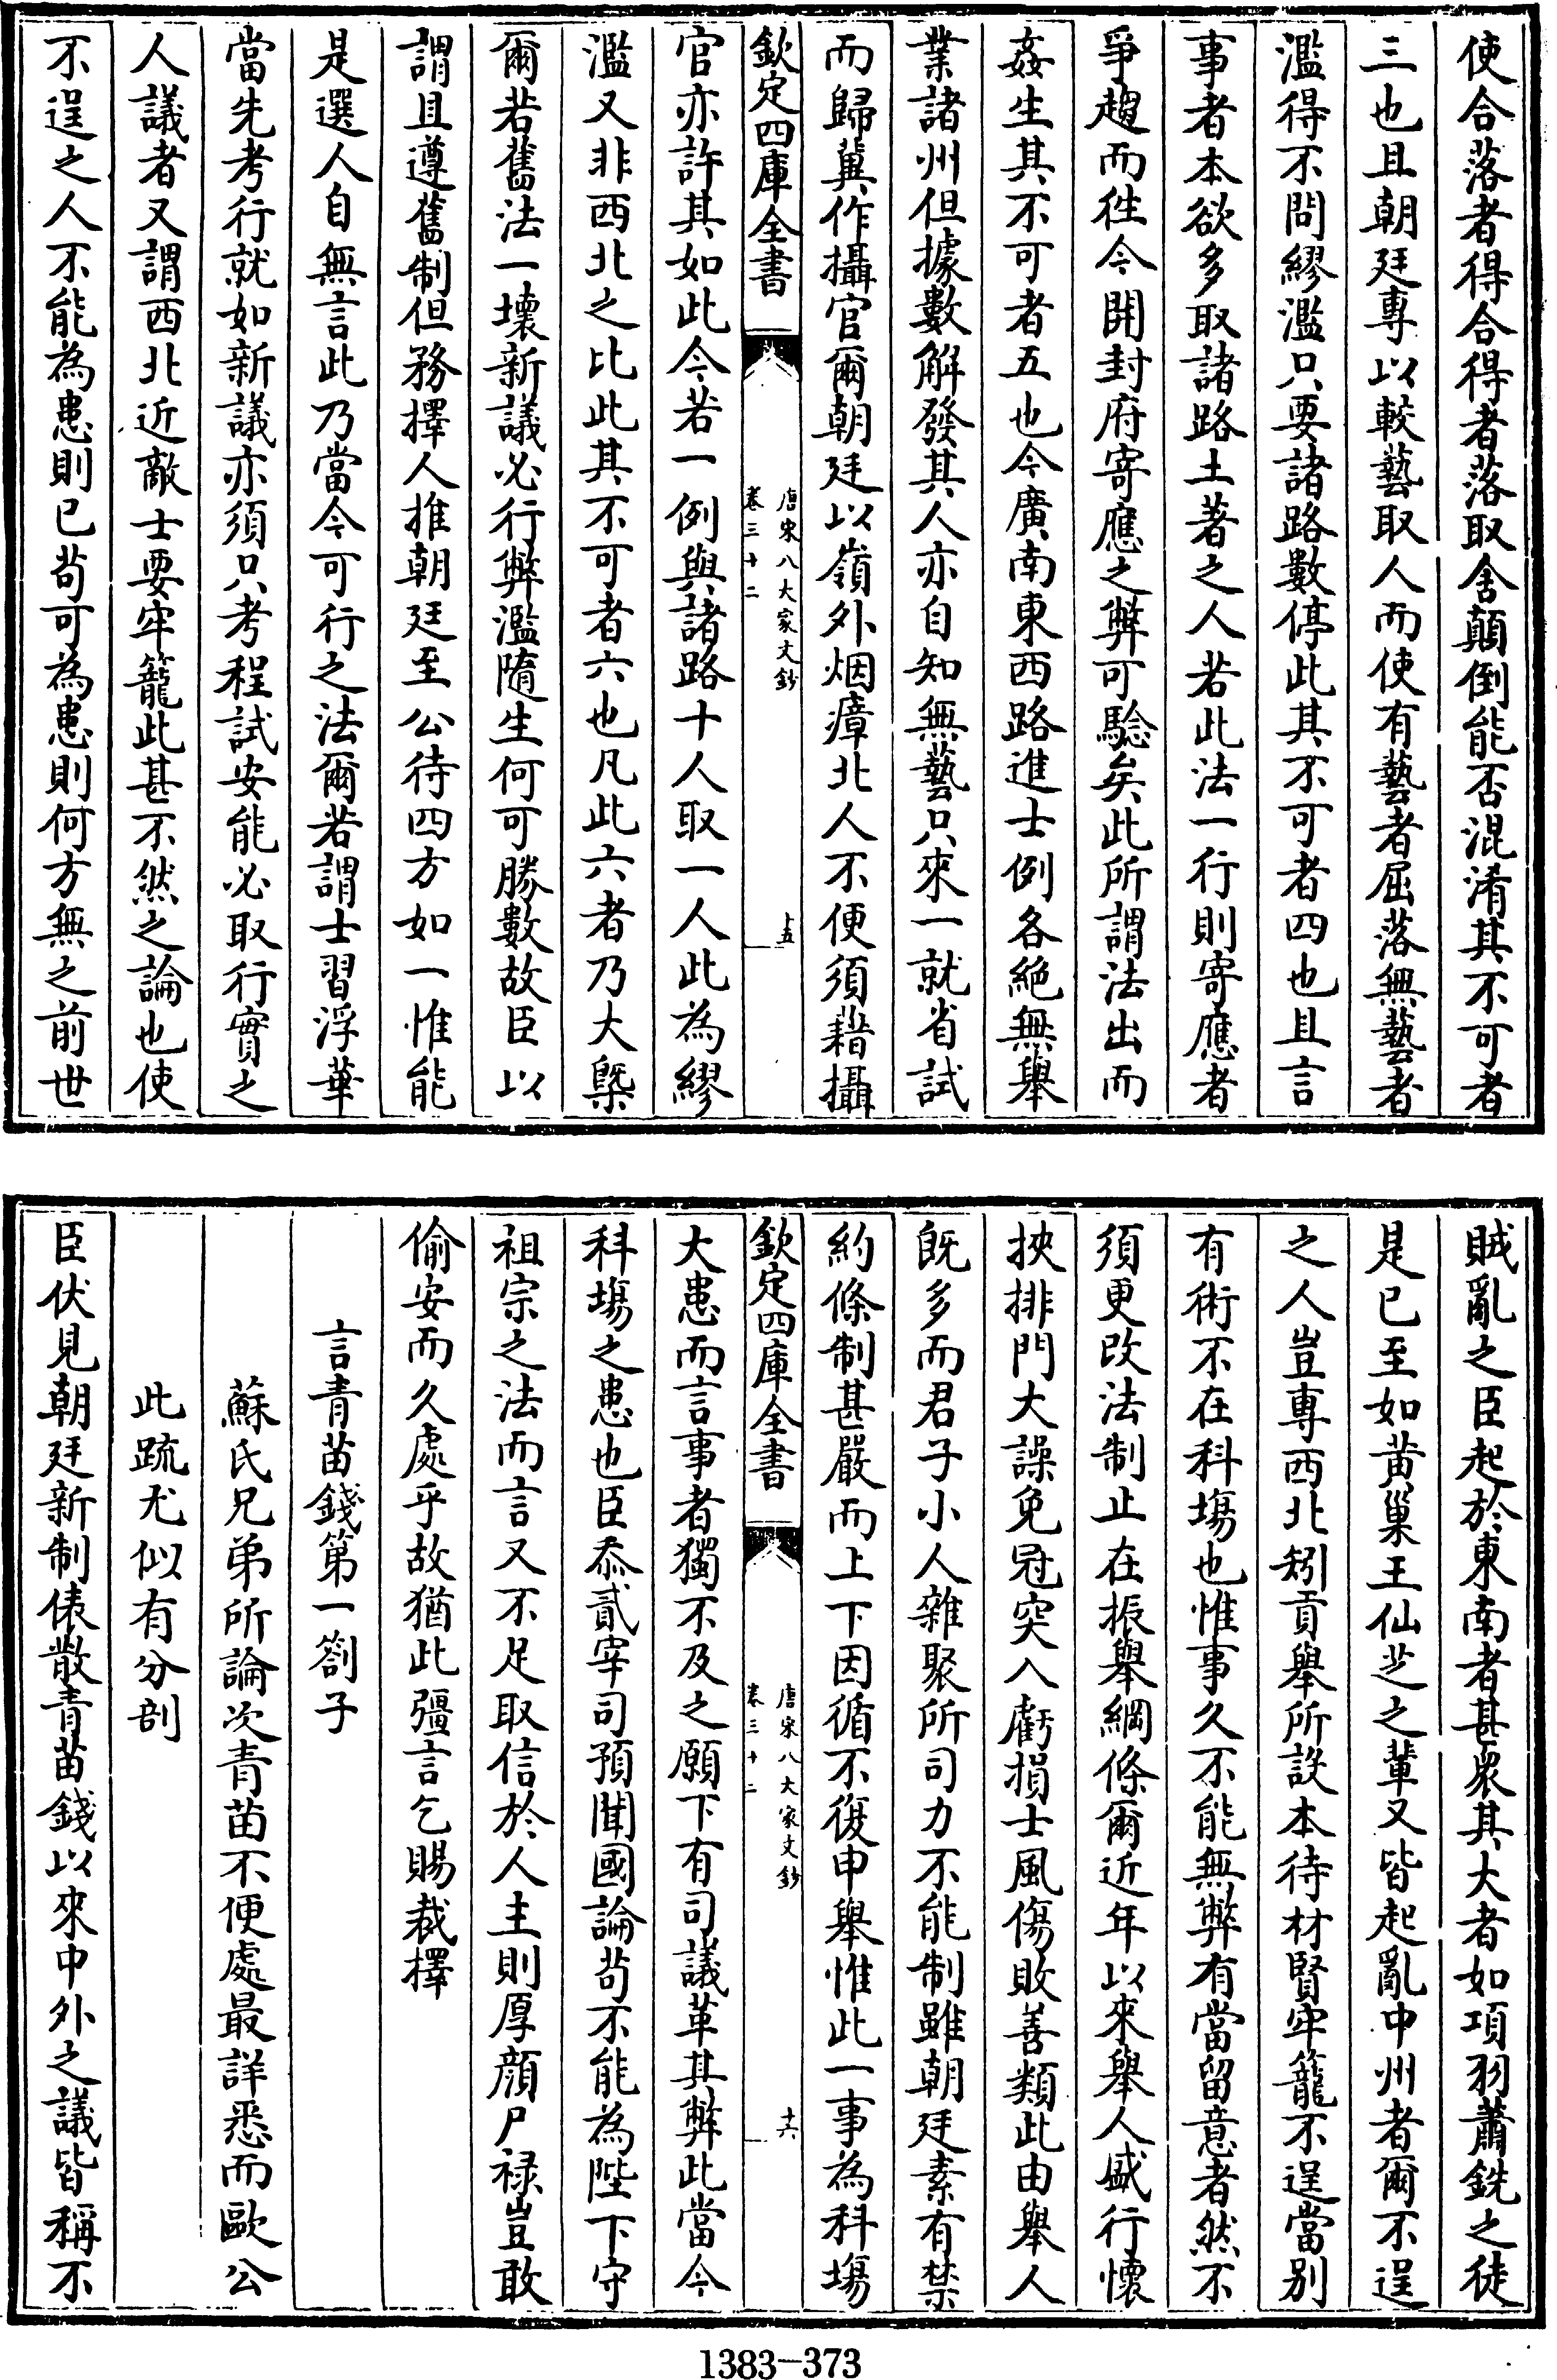 使合落者得合得者落取舍顛倒能否混淆其不可者
三也且朝廷專以較藝取人而使有藝者屈落無藝者
濫得不問繆濫只要諸路數停此其不可者四也且言
事者本欲多取諸路土著之人若此法一行則寄應者
爭趨而徃今開封府寄應之弊可驗矣此所謂法出而
姦生其不可者五也今廣南東西路進士例各絕無舉
業諸州但據數解發其人亦自知無藝只來一就省試
而歸冀作攝官爾朝廷以嶺外烟瘴北人不便須藉攝
欽定四庫全書
唐宋八大家文鈔
卷三十二
十五
官亦許其如此今若一例與諸路十人取一人此為繆
濫又非西北之比此其不可者六也凡此六者乃大槩
爾若舊法一壞新議必行弊濫隨生何可勝數故臣以
謂且遵舊制但務擇人推朝廷至公待四方如一惟能
是選人自無言此乃當今可行之法爾若謂士習浮華
當先考行就如新議亦須只考程試安能必取行實之
人議者又謂西北近敵士要牢籠此甚不然之論也使
不逞之人不能為患則已苟可為患則何方無之前世
賊亂之臣起於東南者甚衆其大者如項羽蕭銑之徒
是已至如黄巢王仙芝之輩又皆起亂中州者爾不逞
之人豈專西北矧貢舉所設本待材賢牢籠不逞當别
有術不在科塲也惟事久不能無弊有當留意者然不
須更改法制止在振舉綱條爾近年以來舉人盛行懷
挾排門大譟免冠突入虧損士風傷敗善類此由舉人
既多而君子小人雜聚所司力不能制雖朝廷素有禁
約條制甚嚴而上下因循不復申舉惟此一事為科塲
欽定四庫全書
唐宋八大家文鈔
卷三十二
十六
大患而言事者獨不及之願下有司議革其弊此當今
科塲之患也臣忝貳宰司預聞國論苟不能為陛下守
祖宗之法而言又不足取信於人主則厚顔尸禄豈敢
偷安而久處乎故猶此彊言乞賜裁擇
言青苗錢第一劄子
蘇氏兄弟所論次青苗不便處最詳悉而歐公
此疏尤似有分剖
臣伏見朝廷新制俵散青苗錢以來中外之議皆稱不
1383-373